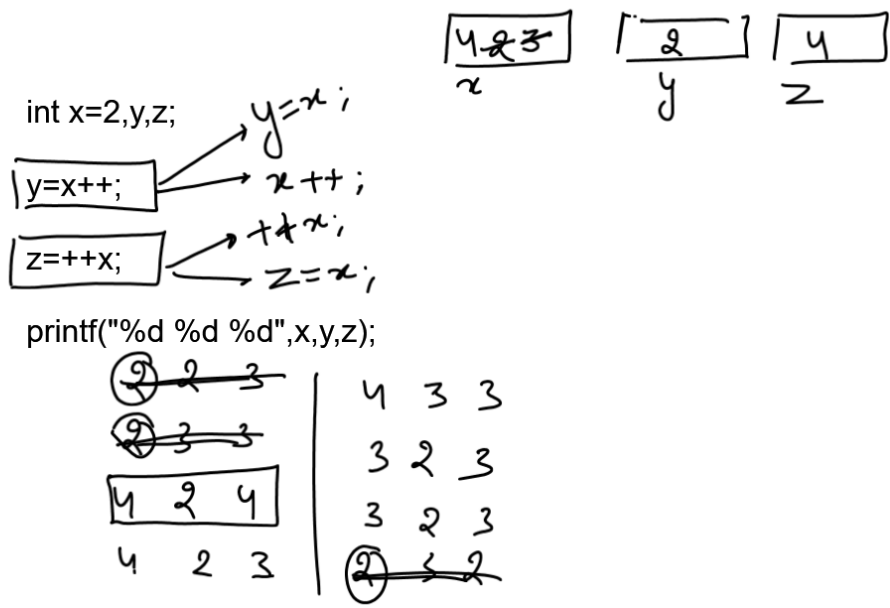 4 2 3 2 4
x y z
int x=2,y,z;
y=x;
y=x++;
x++;
++x;
z=++x;
z=x;
printf("%d %d %d",x,y,z);
2 2 3
2 3 3
4 2 4
4 2 3
4 3 3
3 2 3
3 2 3
2 3 2